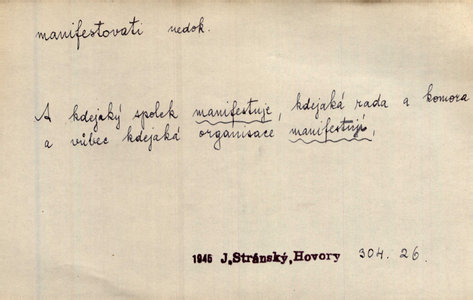 manifestovati nedok.
A kdejaký spolek manifestuje, kdejaká rada a komora
a vůbec kdejaká organisace manifestují,
1946 J,Stránský,Hovory 304. 26.